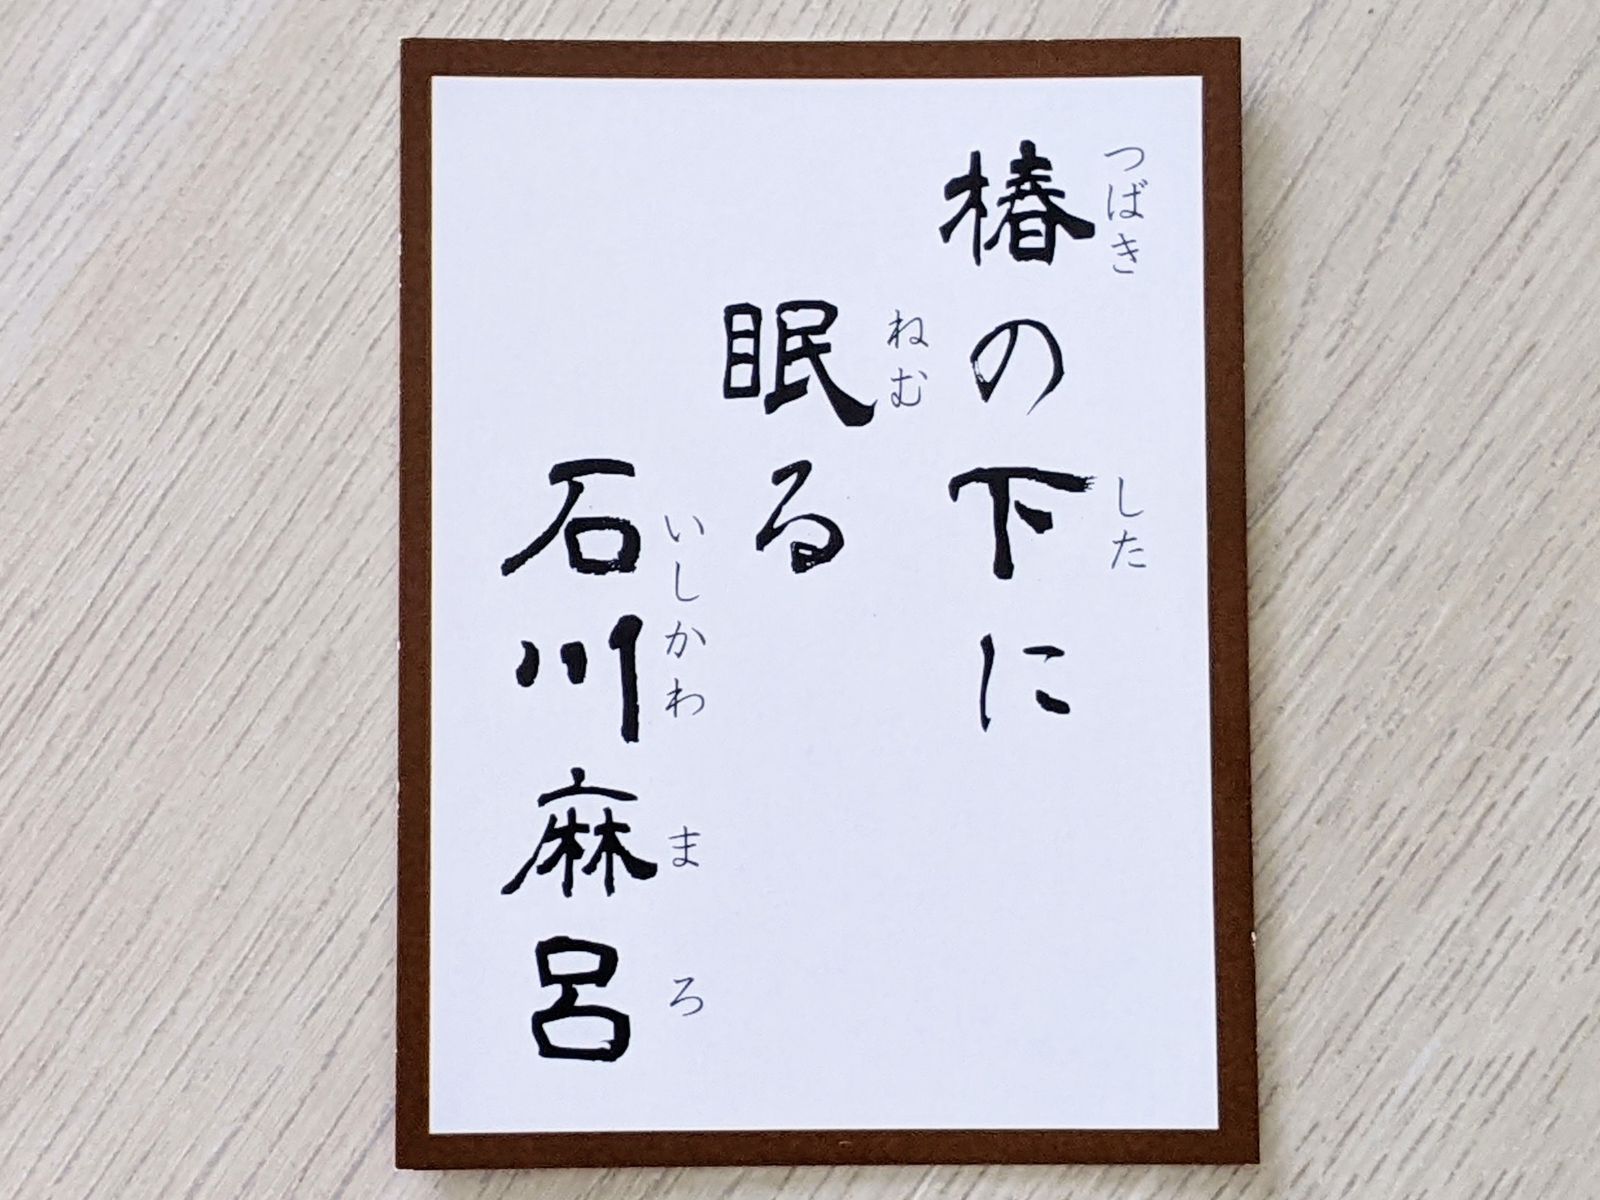 椿の下に
つばき
した
眠る
ねむ
石川麻呂
いしかわまろ